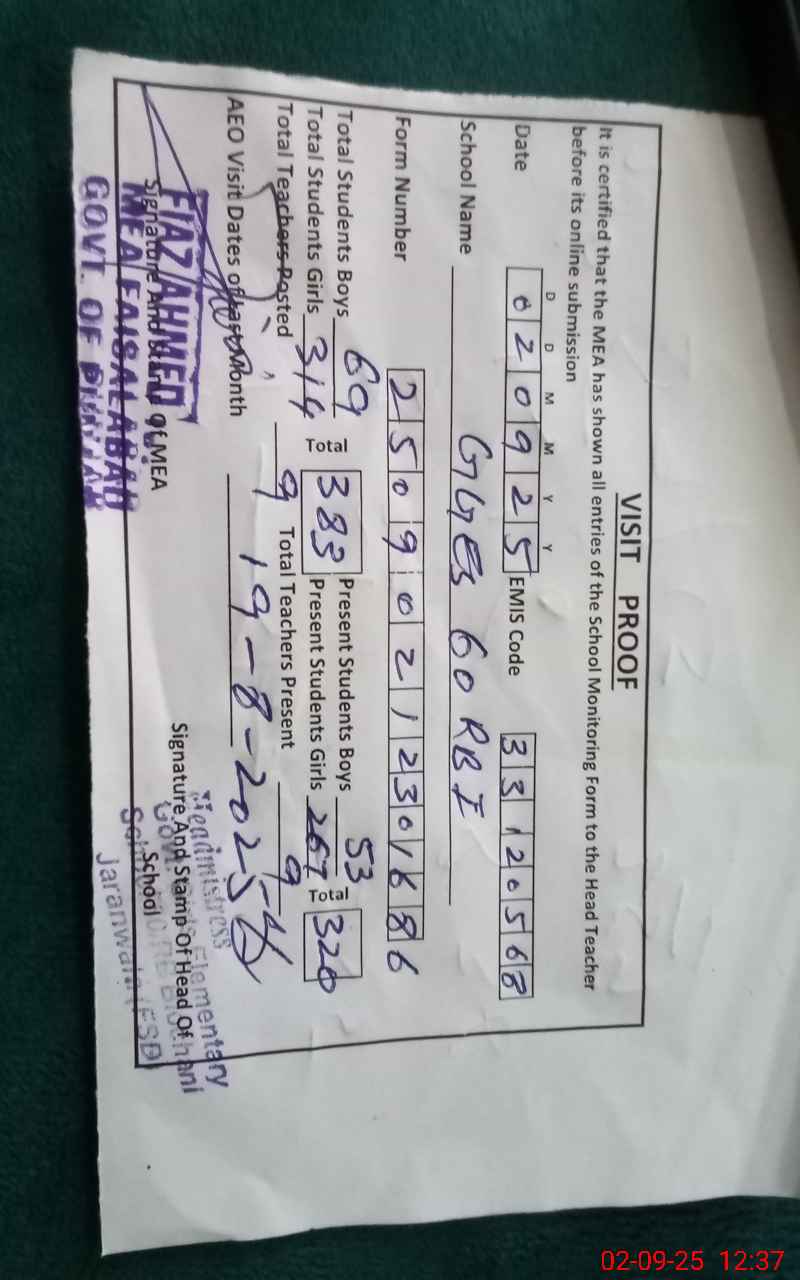 VISIT PROOF
It is certified that the MEA has shown all entries of the School Monitoring Form to the Head Teacher
before its online submission
D D M M Y Y
Date 020925 EMIS Code 33120568
School Name GGES 60 RB I
Form Number 25090212301686
Total Students Boys 69 Total 383 Present Students Boys 53 Total 320
Total Students Girls 314 Present Students Girls 267
Total Teachers Posted 9 Total Teachers Present 9
AEO Visit Dates of Last Month 19-8-2025
Signature And Stamp Of MEA
FIAZ AHMED
MEA FAISALABAD
GOVT. OF PUNJAB
Signature And Stamp Of Head Of
School
Headmistress
Elementary
Jaranwala (FSD)
02-09-25 12:37